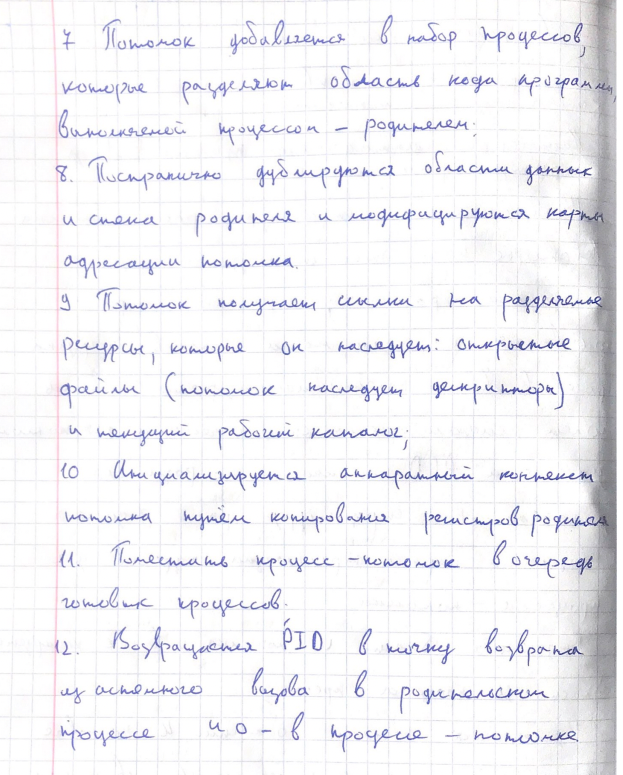 7 Потомок добавляется в набор процессов,
которые разделяют область кода программы,
выполняемой процессом - родителем;
8. Постранично дублируются области данных
и стека родителя и модифицируются карты
адресации потомка.
9 Потомок получает ссылки на разделяемые
ресурсы, которые он наследует: открытые
файлы (потомок наследует дескрипторы)
и текущий рабочий каталог;
10 Инициализируется аппаратный контекст
потомка путём копирования регистров родителя
11. Поместить процесс - потомок в очередь
готовых процессов.
12. Возвращается PID в точку возврата
из системного вызова в родительском
процессе и 0 - в процессе - потомке